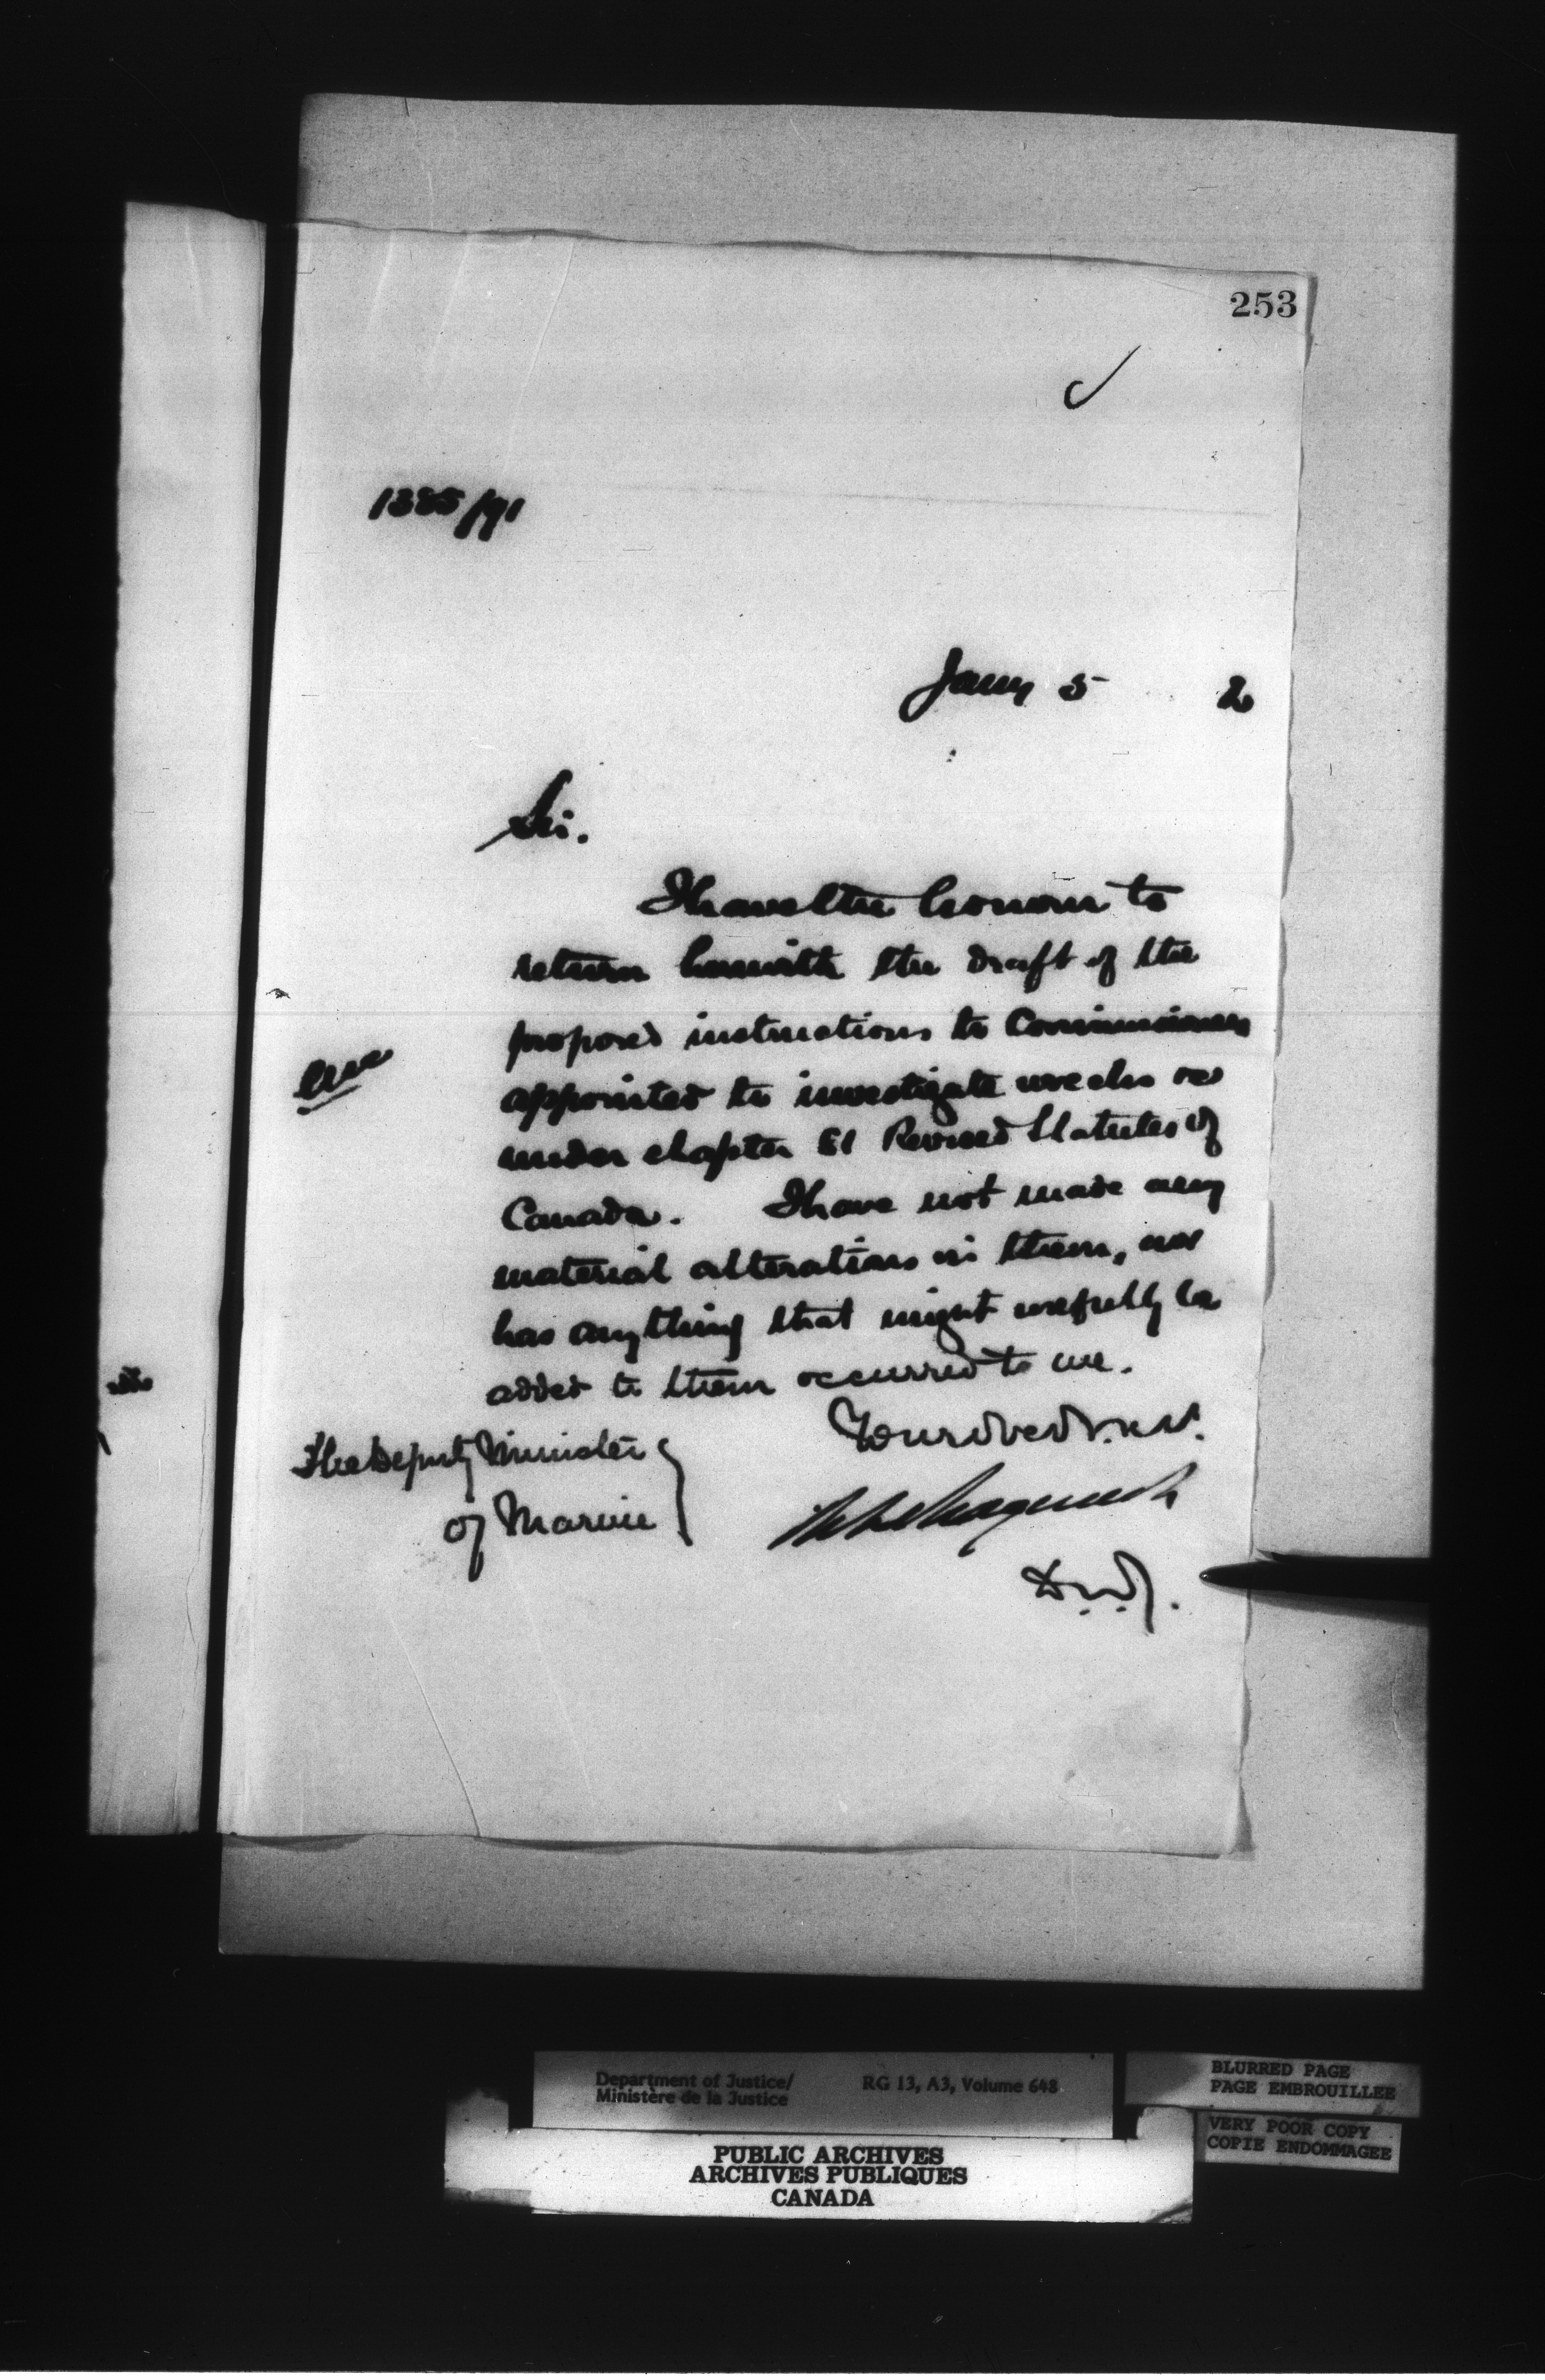 253
1385/91
Jany 5 2
Sir.
I have the honour to
return herewith the draft of the
proposed instructions to Commissioners
appointed to investigate wrecks &c
under chapter 81 Revised Statutes of
Canada. I have not made any
material alterations in them, nor
has anything that might usefully be
added to them occurred to me.
The Deputy Minister
of Marine
D.M.J.
Department of Justice/
Ministère de la Justice
RG 13, A3, Volume 648
BLURRED PAGE
PAGE EMBROUILLEE
VERY POOR COPY
COPIE ENDOMMAGEE
PUBLIC ARCHIVES
ARCHIVES PUBLIQUES
CANADA